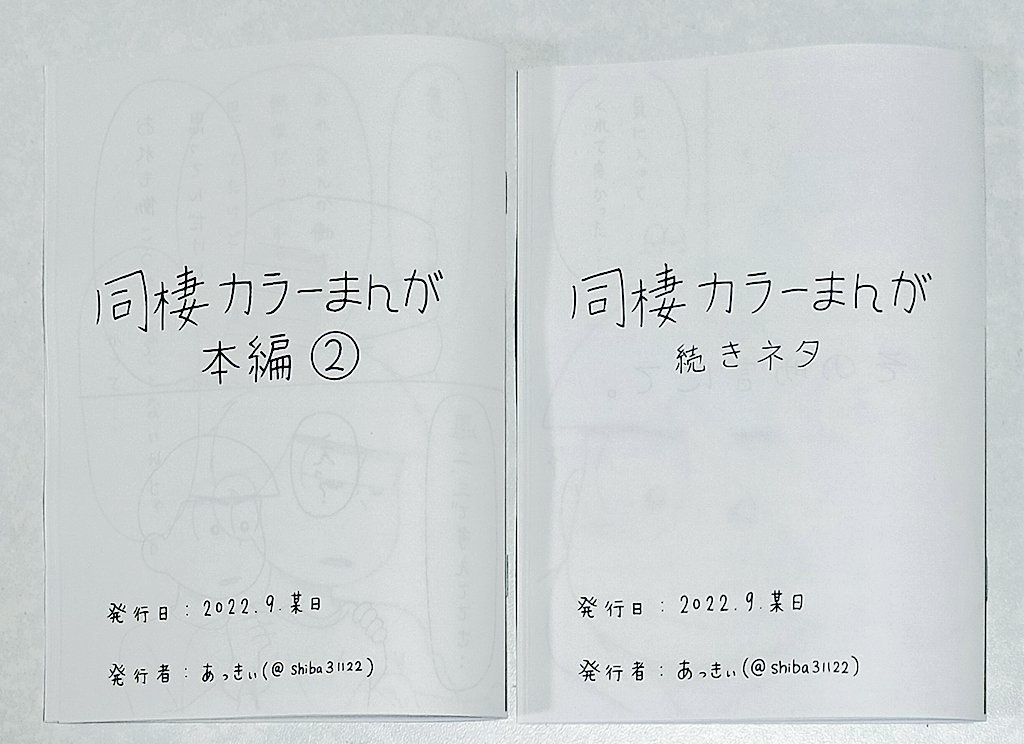 同棲カラーまんが
本編②
発行日：2022.9.某日
発行者：あっきぃ(@shiba31122)
同棲カラーまんが
続きネタ
発行日：2022.9.某日
発行者：あっきぃ(@shiba31122)